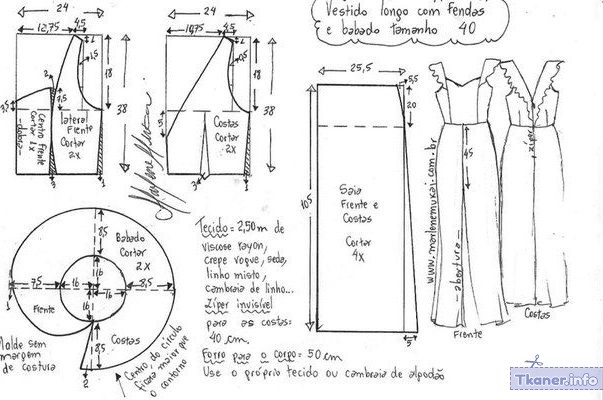 Vestido longo com Fendas
e babado tamanho 40
24
12,75
4,5
1
1,5
18
38
2
7,5
7,5
Centro Frente
Cortar 1x
-dobra-
lateral
Frente
Cortar
2x
3
24
10,75
4,5
1
0,5
18
38
5
Costas
Cortar
2x
3
25,5
5,5
20
105
Saia
Frente e
Costas
Cortar
4x
5
www.marlenemukai.com.br
45
-abertura-
Frente
zíper
Costas
Babado
Cortar
2X
8,5
16
7,5
16
16
8,5
16
8,5
1
1
2
Frente
Costas
Molde sem
margem
de costura
Centro do círculo
ficará maior que
o contorno
Tecido = 2,50m de
viscose rayon,
crepe vogue, seda,
linho misto,
cambraia de linho...
Zíper invisível
para as costas:
40 cm.
Forro para o corpo = 50 cm
Use o próprio tecido ou cambraia de algodão
Tkaner.info